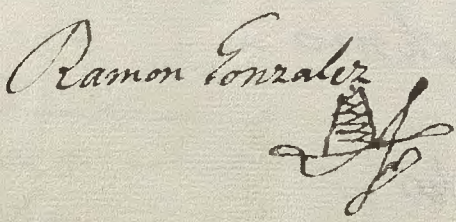 Ramon Gonzalez